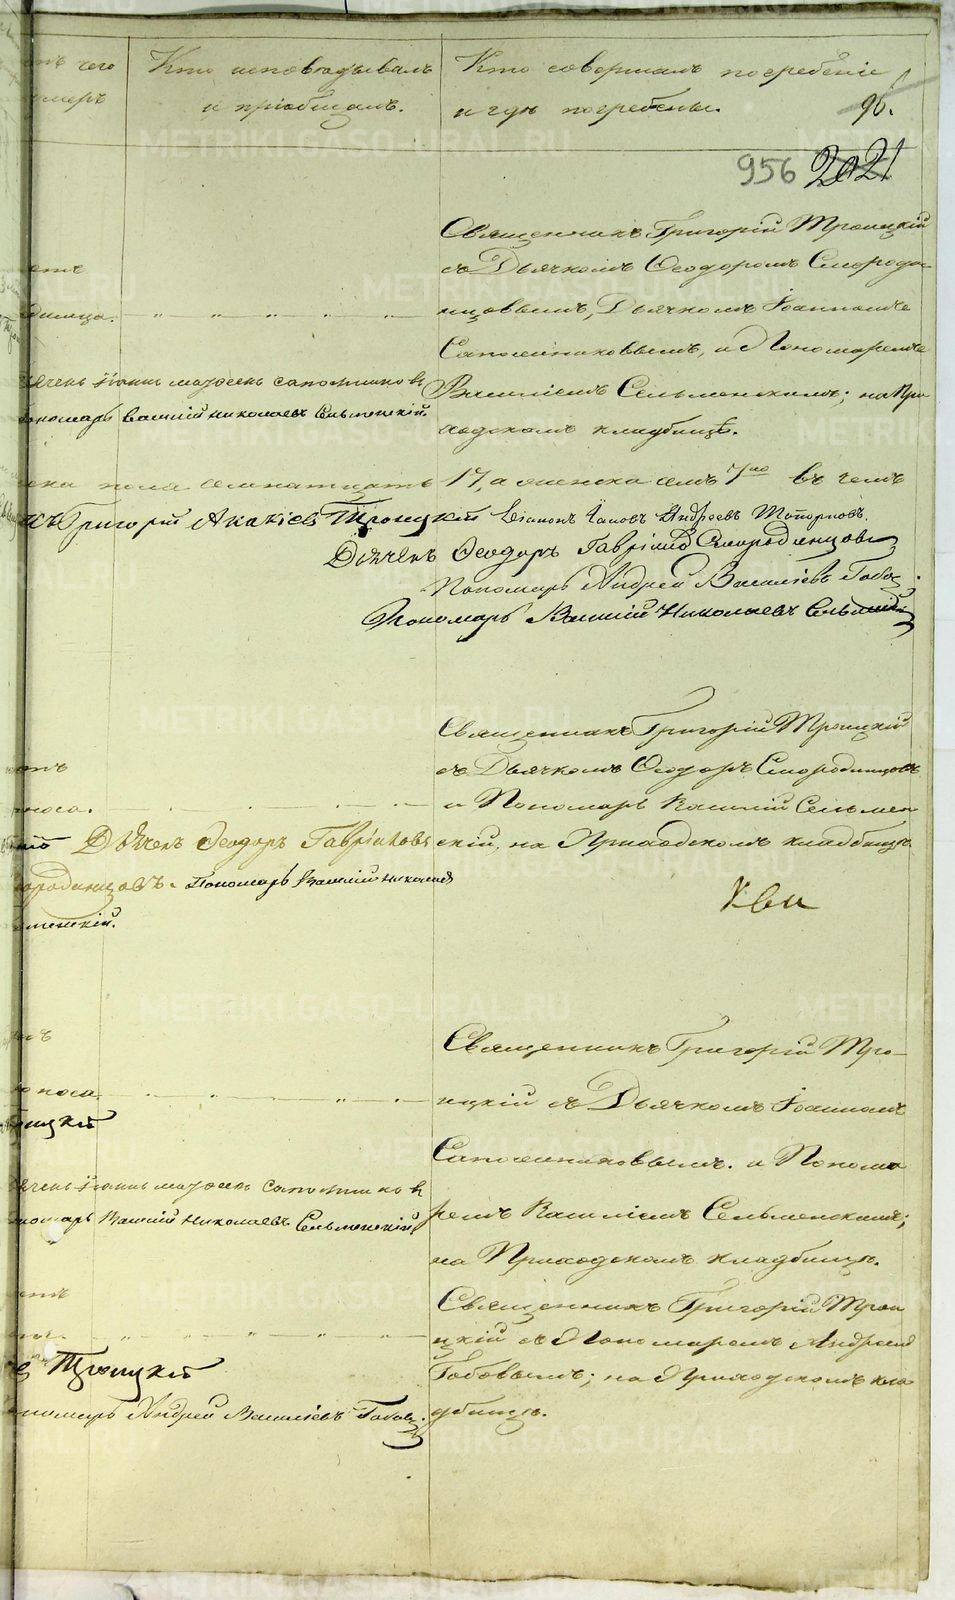 отъ чего
умеръ
Кто исповѣдывалъ
и пріобщалъ.
Кто совершалъ погребеніе
и гдѣ погребены.
96.
956 2021
Священникъ Григорій Троицкій
съ Дьячкомъ Ѳеодоромъ Смороди-
нцовымъ, Дьячкомъ Іоанномъ
Сапожниковымъ, и Пономаремъ
Василіемъ Сельменскимъ; на При
ходскомъ кладбищѣ.
отъ
димца.
ячекъ Іоаннъ Матѳеевъ Сапожниковъ
ономарь Василій Николаевъ Сельменскій.
ска пола семнатцать 17, а женска семь 7мо въ чемъ
Григорій Акакіевъ Троицкій Діаконъ Іаковъ Андреевъ Топорковъ.
Дьячекъ Ѳеодоръ Гавріиловъ Смородинцовъ
Пономарь Андрей Василіевъ Габов
Пономарь Василій Николаевъ Сельменскій
Священникъ Григорій Троицкій
съ Дьячкомъ Ѳеодоръ Смородинцовъ
и Пономарь Василій Сельмен
скій, на Приходскомъ кладбищѣ
отъ
поноса.
Дьячекъ Ѳеодоръ Гавріиловъ
ородинцовъ. Пономарь Василій Николаев
менскій.
Священникъ Григорій Тро-
ицкій съ Дьячкомъ Іоанномъ
Сапожниковымъ. и Понома
ремъ Василіемъ Сельменскимъ;
на Приходскомъ кладбищѣ.
поноса
оицкій
ячекъ Іоаннъ Матѳеевъ Сапожниковъ
ономарь Василій Николаевъ Сельменскій
Священникъ Григорій Трои
цкій съ Пономаремъ Андреемъ
Габовымъ; на Приходскомъ кла
дбищѣ.
Троицкій
ономарь Андрей Василіевъ Габов
METRIKI.GASO-URAL.RU